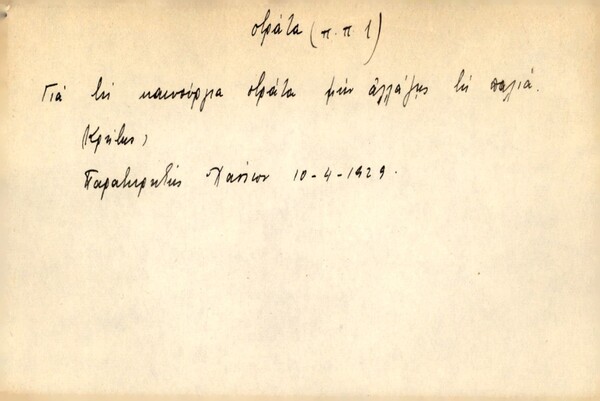 στράτα (π. π. 1)
Γιά τή καινούργια στράτα μήν ἀλλάζῃς τή παλιά.
Κρήτης,
Παρατηρητής Χανίων 10-4-1929.